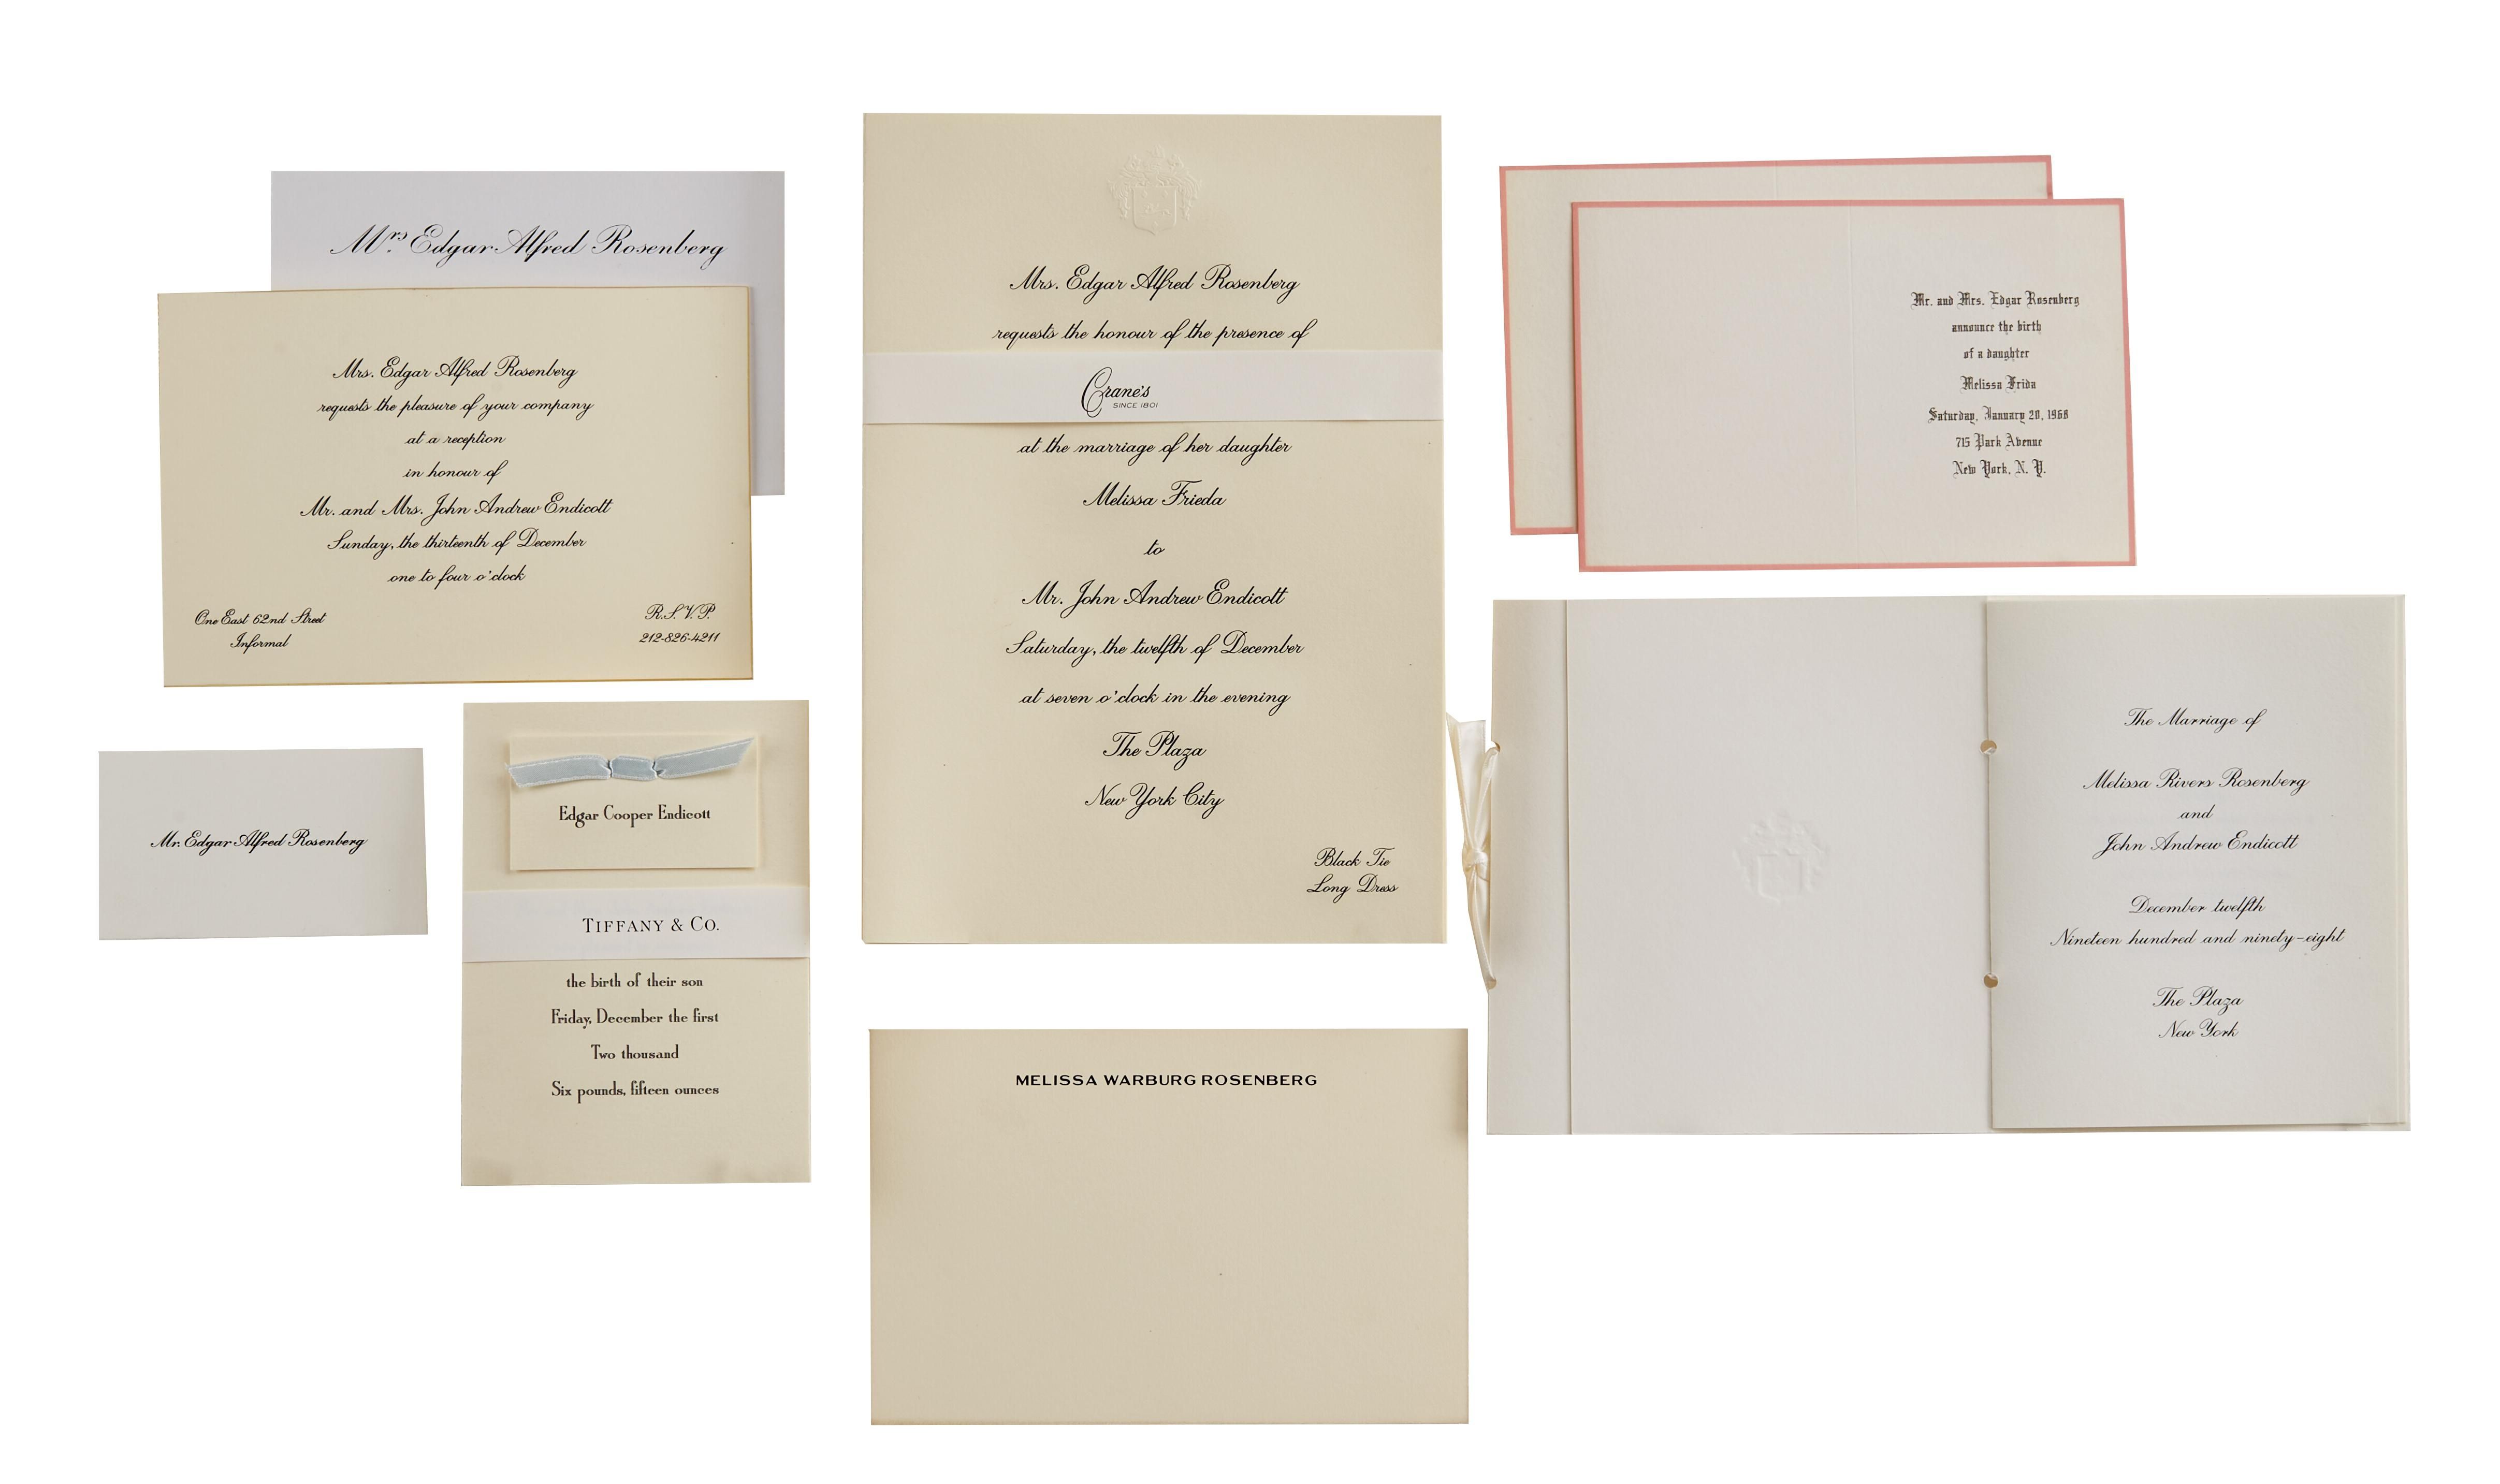 Mrs. Edgar Alfred Rosenberg
Mrs. Edgar Alfred Rosenberg
requests the pleasure of your company
at a reception
in honour of
Mr. and Mrs. John Andrew Endicott
Sunday, the thirteenth of December
one to four o'clock
One East 62nd Street
Informal
R.S.V.P.
212-826-4211
Mr. Edgar Alfred Rosenberg
Edgar Cooper Endicott
TIFFANY & CO.
the birth of their son
Friday, December the first
Two thousand
Six pounds, fifteen ounces
Mrs. Edgar Alfred Rosenberg
requests the honour of the presence of
Crane's
SINCE 1801
at the marriage of her daughter
Melissa Frieda
to
Mr. John Andrew Endicott
Saturday, the twelfth of December
at seven o'clock in the evening
The Plaza
New York City
Black Tie
Long Dress
MELISSA WARBURG ROSENBERG
Mr. and Mrs. Edgar Rosenberg
announce the birth
of a daughter
Melissa Frida
Saturday, January 20, 1968
715 Park Avenue
New York, N. Y.
The Marriage of
Melissa Rivers Rosenberg
and
John Andrew Endicott
December twelfth
Nineteen hundred and ninety-eight
The Plaza
New York